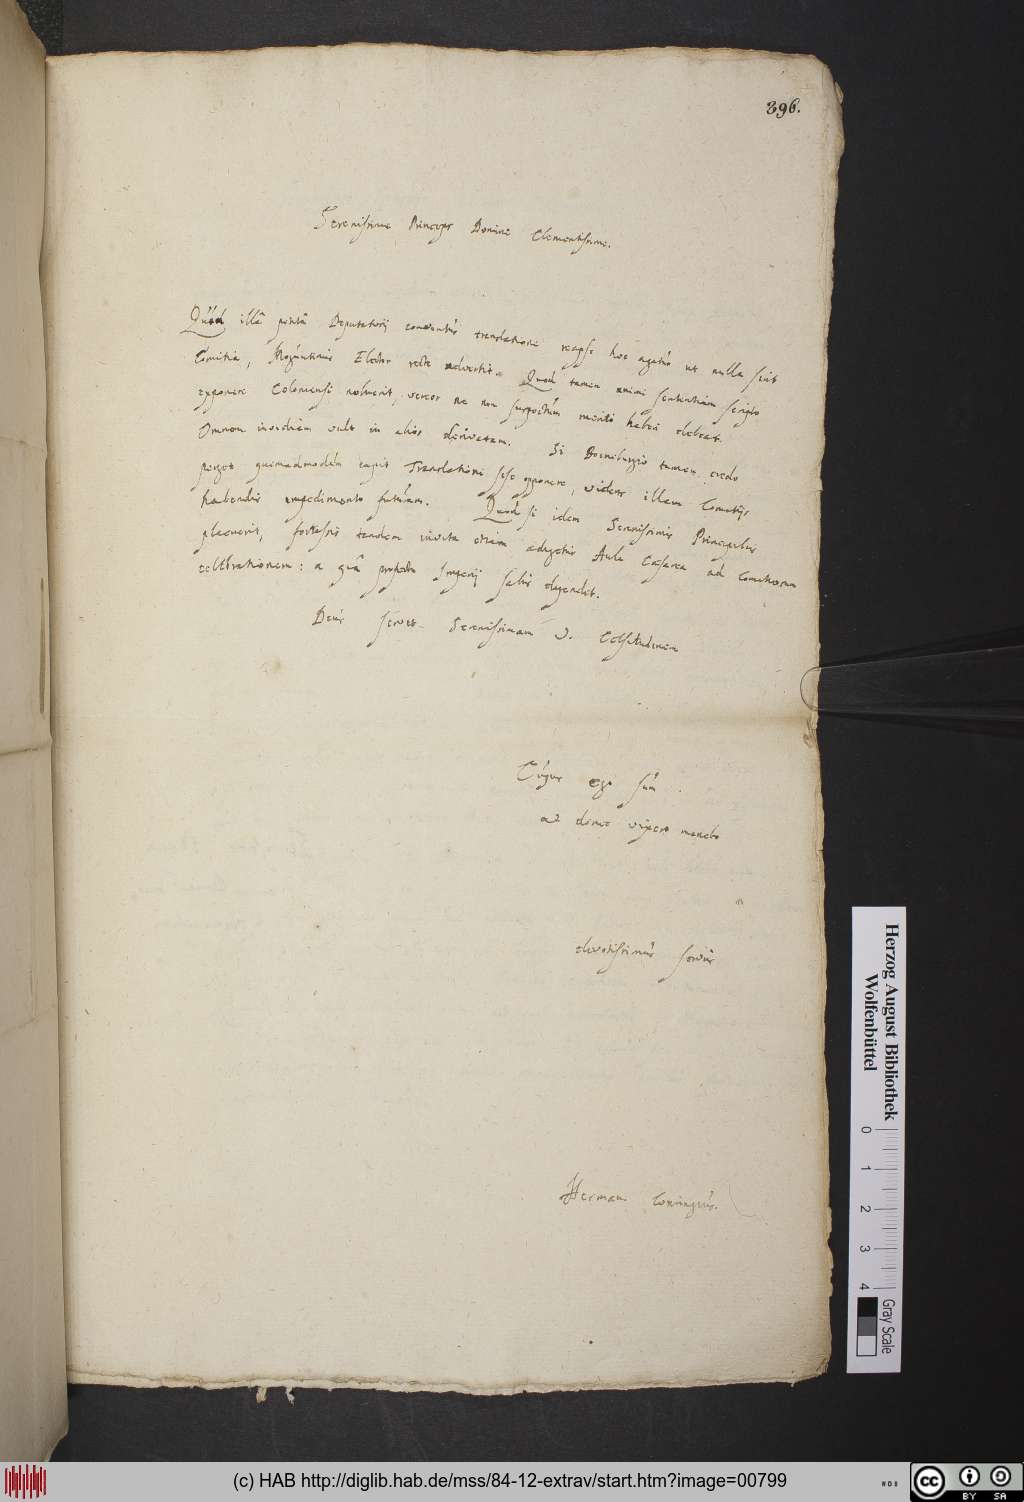 396.
Serenissime Princeps Domine Clementissime.
Quòd illâ Deputatorij conventûs translatione reapse hoc agatur ut nulla sint
Comitia, Moguntinus Elector recte advertit. Quod tamen animi sententiam scripto
exponere Coloniensi noluerit, vereor ne non suspectum meritò haberi debeat.
Omnem invidiam vult in alios derivatam. Si Boineburgio tamen credo
perget quemadmodum cepit Translationi sese opponere, videns illam Comitijs
habendis impedimento futuram. Quòd si idem Serenissimis Principibus
placuerit, fortassis tandem invita etiam adigetur Aula Caesarea ad Comitiorum
celebrationem: a quâ profecto Imperij salus dependet.
Deus servet Serenissimam V. Celsitudinem
Cujus ego sum
ac donec vixero manebo
devotissimus servus
Herman Conringius.
Herzog August Bibliothek
Wolfenbüttel
0 1 2 3 4
Gray Scale
(c) HAB http://diglib.hab.de/mss/84-12-extrav/start.htm?image=00799
WDB
cc BY SA